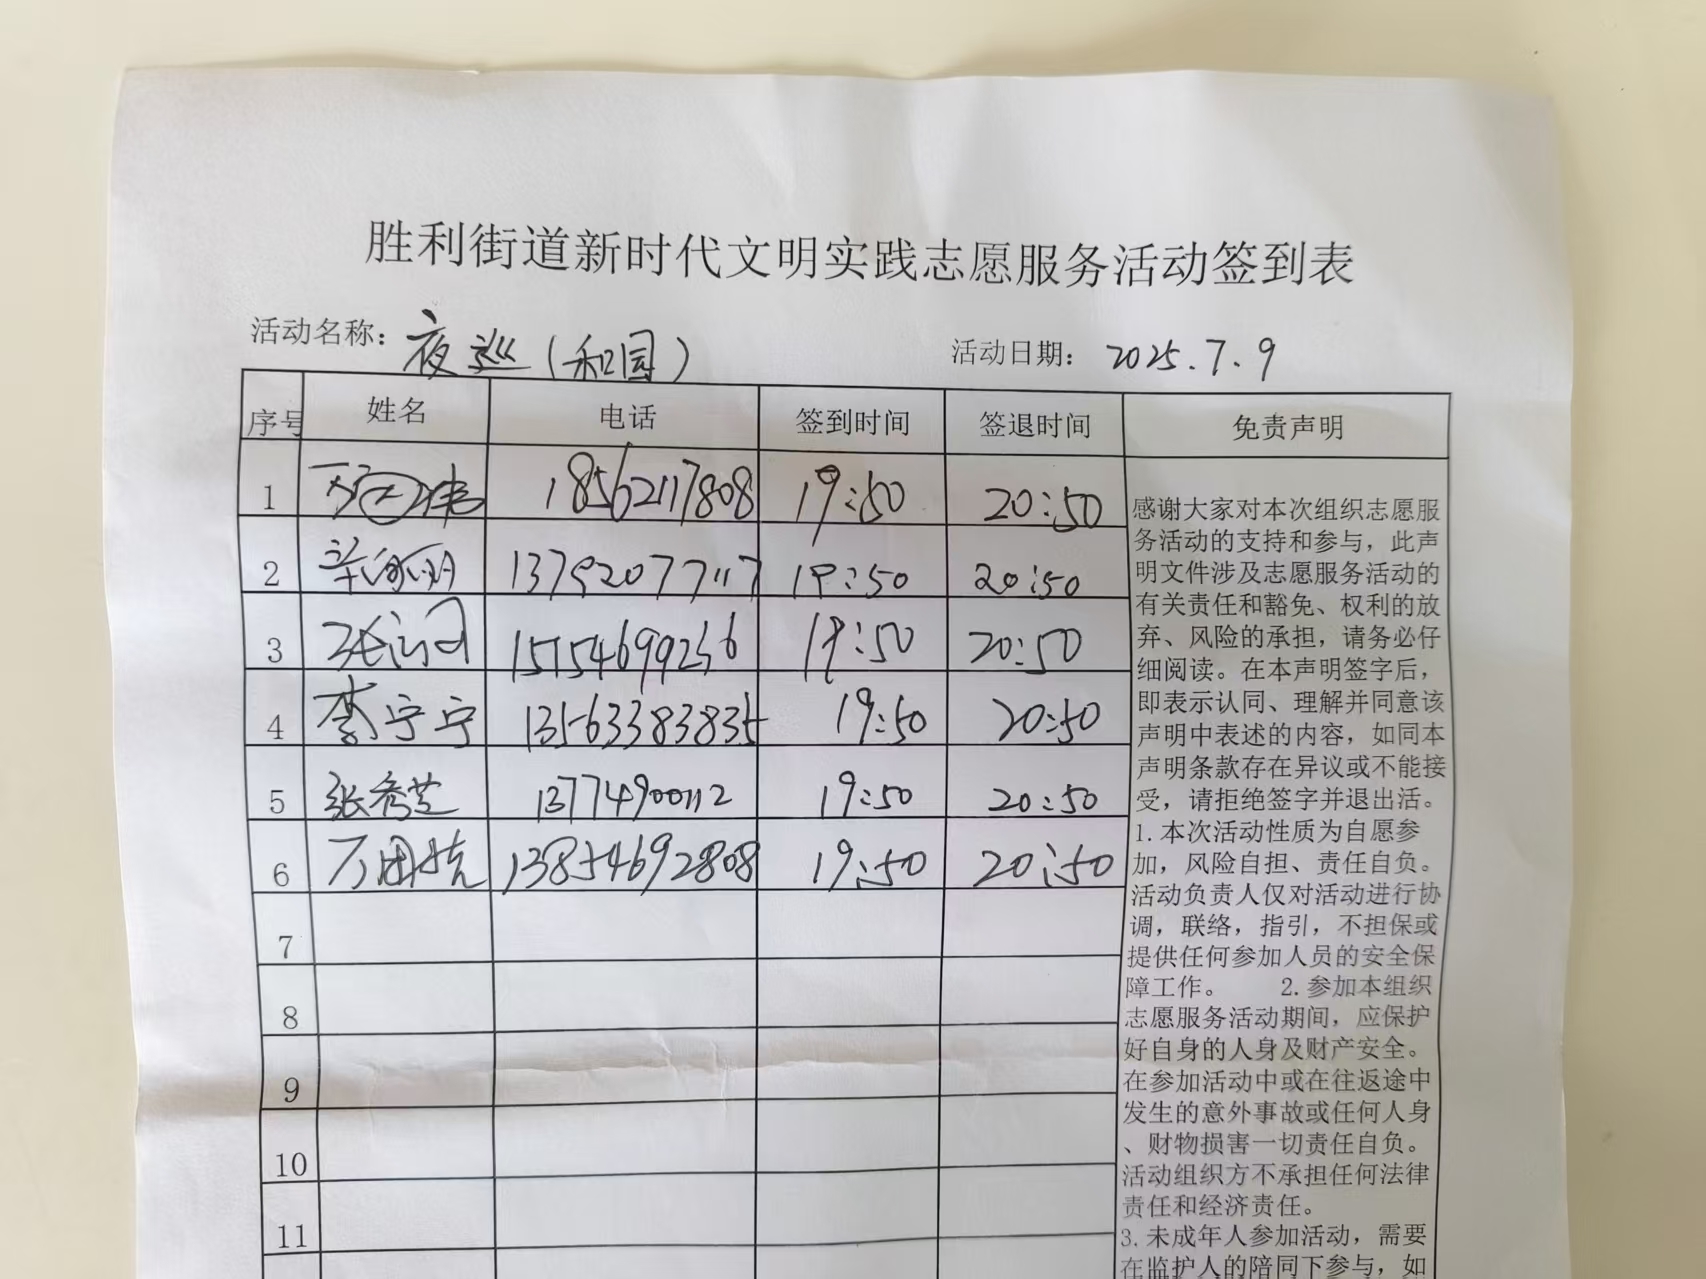 胜利街道新时代文明实践志愿服务活动签到表
活动名称：夜巡（和园） 活动日期：2025.7.9
序号 姓名 电话 签到时间 签退时间 免责声明
1 18562117808 19:50 20:50
2 13792077117 19:50 20:50
3 15154699236 19:50 20:50
4 李宁宁 13563383835 19:50 20:50
5 张秀芝 13774900112 19:50 20:50
6 13854692808 19:50 20:50
7
8
9
10
11
感谢大家对本次组织志愿服
务活动的支持和参与，此声
明文件涉及志愿服务活动的
有关责任和豁免、权利的放
弃、风险的承担，请务必仔
细阅读。在本声明签字后，
即表示认同、理解并同意该
声明中表述的内容，如同本
声明条款存在异议或不能接
受，请拒绝签字并退出活。
1.本次活动性质为自愿参
加，风险自担、责任自负。
活动负责人仅对活动进行协
调，联络，指引，不担保或
提供任何参加人员的安全保
障工作。 2.参加本组织
志愿服务活动期间，应保护
好自身的人身及财产安全。
在参加活动中或在往返途中
发生的意外事故或任何人身
、财物损害一切责任自负。
活动组织方不承担任何法律
责任和经济责任。
3.未成年人参加活动，需要
在监护人的陪同下参与，如